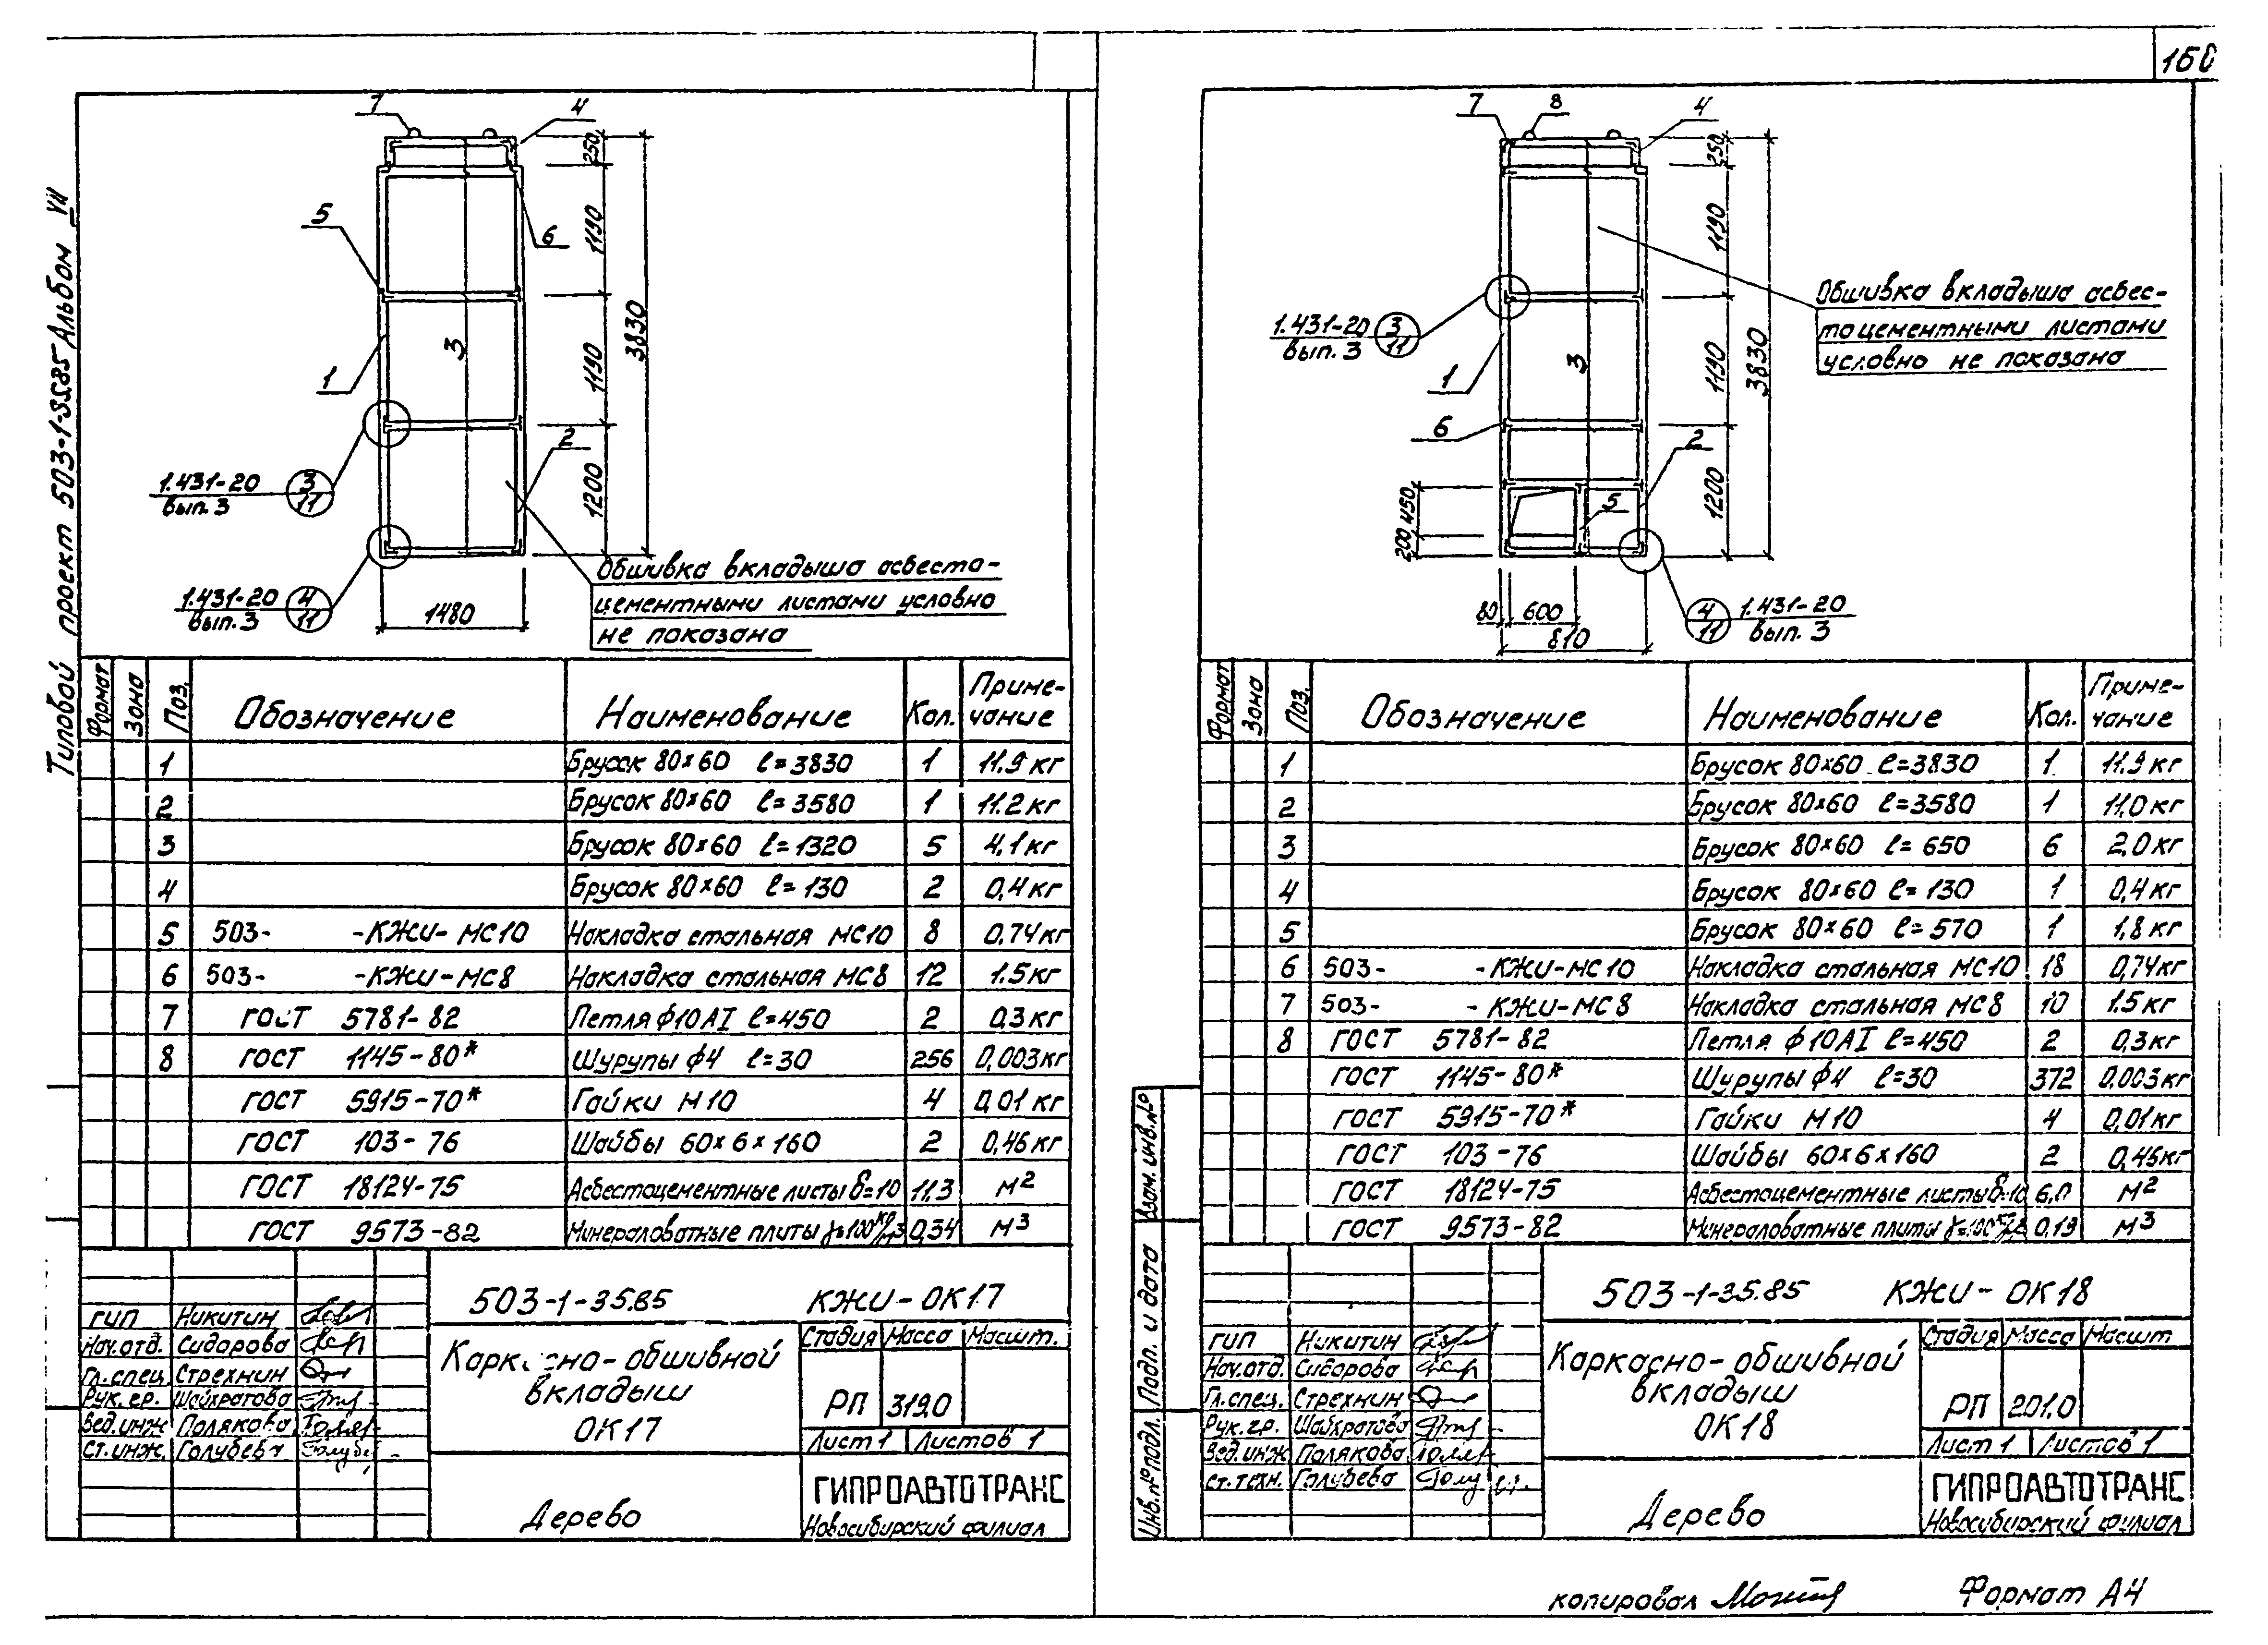 150
Типовой проект 503-1-35.85 Альбом VII
7
4
250
5
6
1190
3
3830
1
1190
2
1.431-20 3
вып. 3 11
1200
1.431-20 4
вып. 3 11
1480
Обшивка вкладыша асбесто-
цементными листами условно
не показана
Формат Зона Поз. Обозначение Наименование Кол. Приме-
чание
1 Брусок 80×60 ℓ=3830 1 11.9 кг
2 Брусок 80×60 ℓ=3580 1 11.2 кг
3 Брусок 80×60 ℓ=1320 5 4,1 кг
4 Брусок 80×60 ℓ=130 2 0,4 кг
5 503- -КЖИ-МС10 Накладка стальная МС10 8 0,74 кг
6 503- -КЖИ-МС8 Накладка стальная МС8 12 1.5 кг
7 ГОСТ 5781-82 Петля ф10АI ℓ=450 2 0,3 кг
8 ГОСТ 1145-80* Шурупы ф4 ℓ=30 256 0,003 кг
ГОСТ 5915-70* Гайки М10 4 0,01 кг
ГОСТ 103-76 Шайбы 60×6×160 2 0,46 кг
ГОСТ 18124-75 Асбестоцементные листы δ=10 11.3 м²
ГОСТ 9573-82 Минераловатные плиты γ=100 кг/м3 0,34 м³
503-1-35.85 КЖИ-ОК17
ГИП Никитин
Нач.отд. Сидорова
Гл.спец. Стрехнин
Рук. гр. Шайхратова
Вед.инж Полякова
Ст.инж. Голубева
Каркасно-обшивной
вкладыш
ОК17
Стадия Масса Масшт.
РП 319.0
Лист 1 Листов 1
Дерево
ГИПРОАВТОТРАНС
Новосибирский филиал
7
8
4
250
1190
1.431-20 3
вып. 3 11
Обшивка вкладыша асбес-
тоцементными листами
условно не показана
1
3
1190
3830
6
2
5
450
200
1200
80 600
810
4 1.431-20
11 вып. 3
Формат Зона Поз. Обозначение Наименование Кол. Приме-
чание
1 Брусок 80×60 ℓ=3830 1 11.9 кг
2 Брусок 80×60 ℓ=3580 1 11,0 кг
3 Брусок 80×60 ℓ=650 6 2.0 кг
4 Брусок 80×60 ℓ=130 1 0,4 кг
5 Брусок 80×60 ℓ=570 1 1,8 кг
6 503- -КЖИ-МС10 Накладка стальная МС10 18 0,74 кг
7 503- -КЖИ-МС8 Накладка стальная МС8 10 1.5 кг
8 ГОСТ 5781-82 Петля ф10АI ℓ=450 2 0,3 кг
ГОСТ 1145-80* Шурупы ф4 ℓ=30 372 0.003 кг
ГОСТ 5915-70* Гайки М10 4 0,01 кг
ГОСТ 103-76 Шайбы 60×6×160 2 0,46 кг
ГОСТ 18124-75 Асбестоцементные листы δ=10 6,0 м²
ГОСТ 9573-82 Минераловатные плиты γ=100 кг/м3 0,19 м³
Инв.№ подл. Подп. и дата Взам. инв.№
503-1-35.85 КЖИ-ОК18
ГИП Никитин
Нач.отд. Сидорова
Гл.спец. Стрехнин
Рук. гр. Шайхратова
Вед.инж Полякова
ст.техн. Голубева
Каркасно-обшивной
вкладыш
ОК18
Стадия Масса Масшт
РП 201.0
Лист 1 Листов 1
Дерево
ГИПРОАВТОТРАНС
Новосибирский филиал
копировал
Формат А4